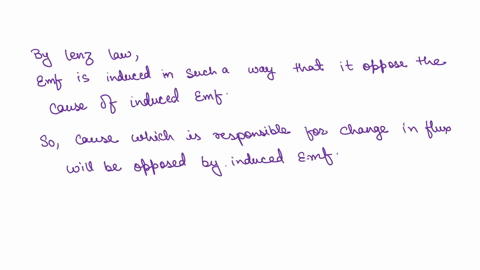 By lenz law,
Emf is induced in such a way that it oppose the
cause of induced Emf.
So, cause which is responsible for change in flux
will be opposed by induced Emf.